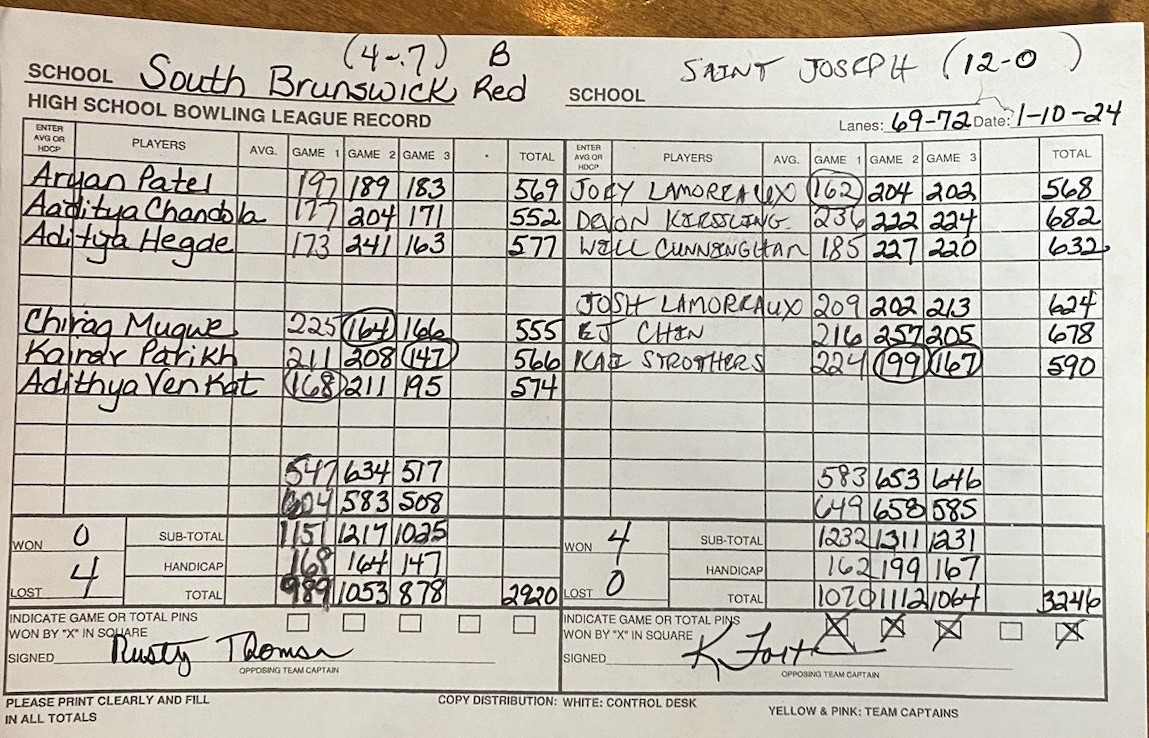 (4-7) B
SCHOOL South Brunswick Red SCHOOL SAINT JOSEPH (12-0)
HIGH SCHOOL BOWLING LEAGUE RECORD Lanes: 69-72 Date: 1-10-24
ENTER AVG OR HDCP PLAYERS AVG. GAME 1 GAME 2 GAME 3 TOTAL ENTER AVG OR HDCP PLAYERS AVG. GAME 1 GAME 2 GAME 3 TOTAL
Aryan Patel 197 189 183 569 JOEY LAMOREAUX 162 204 202 568
Aaditya Chandola 177 204 171 552 DEVON KIESSLING 236 222 224 682
Aditya Hegde 173 241 163 577 WILL CUNNINGHAM 185 227 220 632
JOSH LAMOREAUX 209 202 213 624
Chirag Mugwe 225 164 166 555 EJ CHIN 216 257 205 678
Kairav Parikh 211 208 147 566 KAI STROTHERS 224 199 167 590
Adithya Venkat 168 211 195 574
547 634 517 583 653 646
604 583 508 649 658 585
WON 0 SUB-TOTAL 1151 1217 1025 WON 4 SUB-TOTAL 1232 1311 1231
HANDICAP 168 164 147 HANDICAP 162 199 167
LOST 4 TOTAL 989 1053 878 2920 LOST 0 TOTAL 1070 1112 1064 3246
INDICATE GAME OR TOTAL PINS INDICATE GAME OR TOTAL PINS
WON BY "X" IN SQUARE WON BY "X" IN SQUARE X X X X
SIGNED Rusty Thomsn SIGNED K Fort
OPPOSING TEAM CAPTAIN OPPOSING TEAM CAPTAIN
PLEASE PRINT CLEARLY AND FILL COPY DISTRIBUTION: WHITE: CONTROL DESK
IN ALL TOTALS YELLOW & PINK: TEAM CAPTAINS